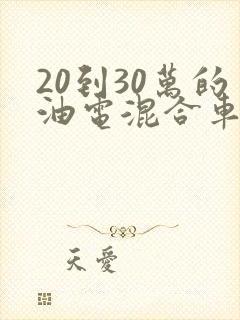 20到30萬的
油電混合車
天愛